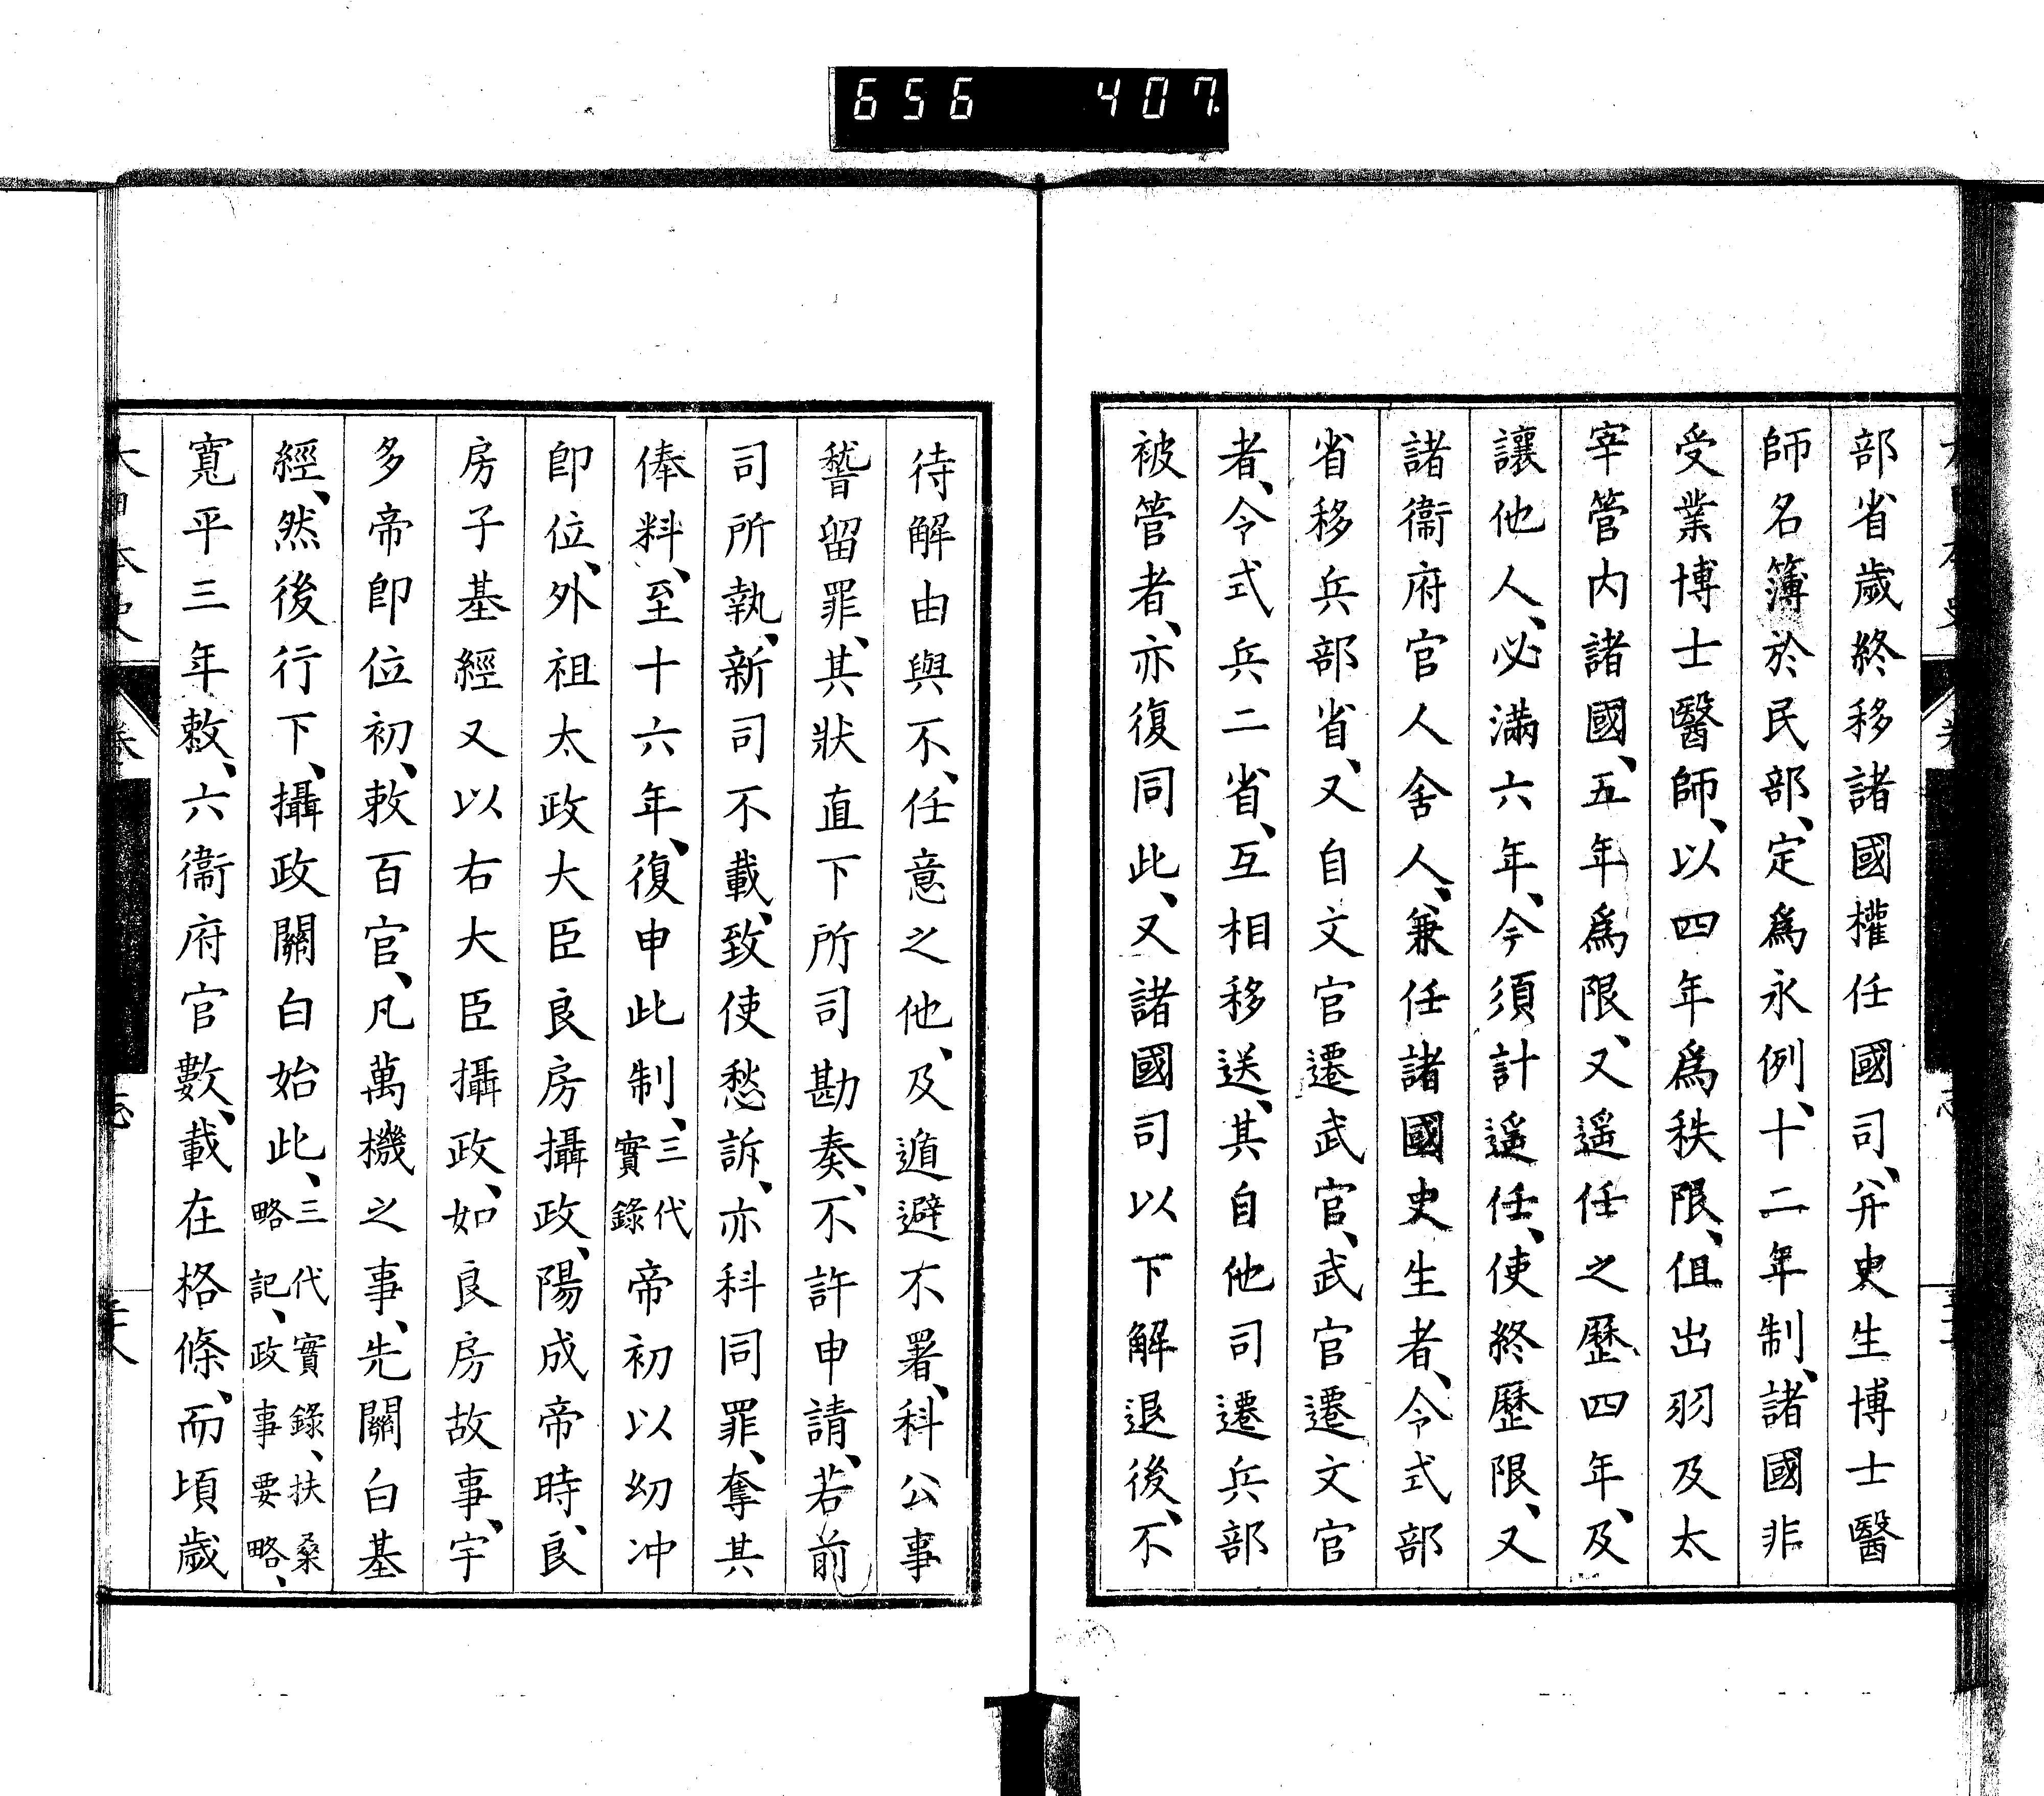 656 407
部省歲終移諸國權任國司、幷史生博士醫
師名簿於民部、定爲永例、十二年制、諸國非
受業博士醫師、以四年爲秩限、但出羽及太
宰管内諸國、五年爲限、又遥任之歷四年、及
讓他人、必滿六年、今須計遥任、使終歷限、又
諸衞府官人舍人、兼任諸國史生者、令式部
省移兵部省、又自文官遷武官、武官遷文官
者、令式兵二省、互相移送、其自他司遷兵部
被管者、亦復同此、又諸國司以下解退後、不
待解由與不、任意之他、及遁避不署、科公事
稽留罪、其狀直下所司勘奏、不許申請、若前
司所執、新司不載、致使愁訴、亦科同罪、奪其
俸料、至十六年、復申此制、三代實錄帝初以幼冲
卽位、外祖太政大臣良房攝政、陽成帝時、良
房子基經又以右大臣攝政、如良房故事、宇
多帝卽位初、敕百官、凡萬機之事、先關白基
經、然後行下、攝政關白始此、三代實錄、扶桑略記、政事要略、
寬平三年敕、六衞府官數、載在格條、而頃歲
大日本史